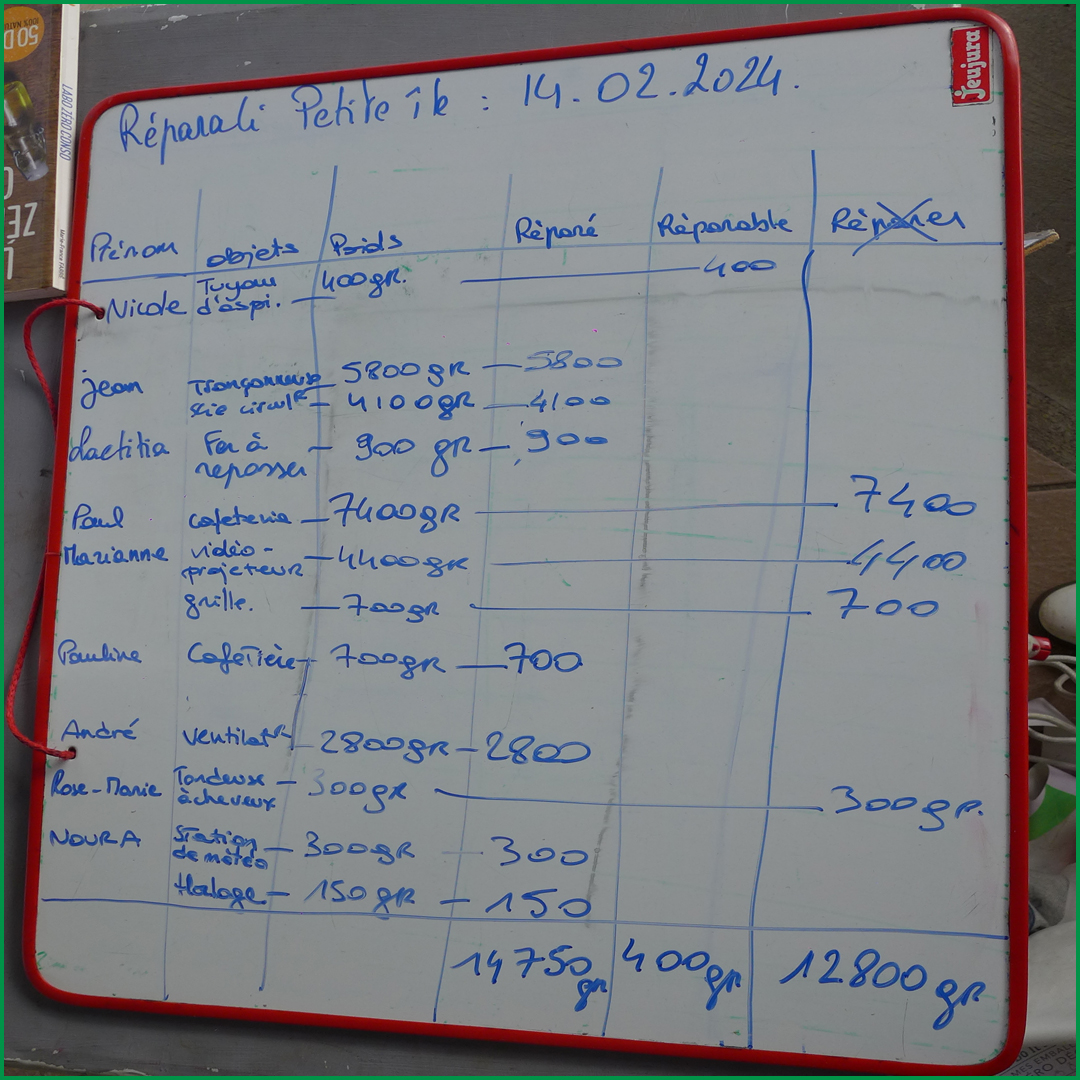 Jeujura
Réparali Petite île : 14.02.2024.
Prénom objets Poids Réparé Réparable Réparer
Nicole Tuyau d'aspi. — 400gr. — 400
Jean Tronçonneuse — 5800gR — 5800
Scie circulR — 4100gR — 4100
Laetitia Fer à repasser — 900 gR — 900
Paul cafeteria — 7400gR — 7400
Marianne vidéo-projeteur — 4400gR — 4400
grille. — 700gR — 700
Pauline Cafetière — 700gR — 700
André ventilatR — 2800gR — 2800
Rose-Marie Tondeuse à cheveux — 300gR — 300gr.
NOURA Station de météo — 300gR — 300
Hologe — 150gR — 150
14750gr 400gr 12800gR
50 D
100% NATU
LABO ZERO CONSO
ZÉ